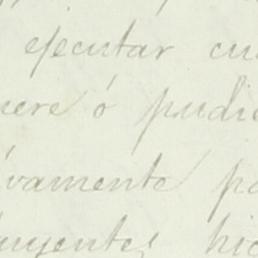 ejecutar cu
iere ó pudie
ivamente po
uyentes hic